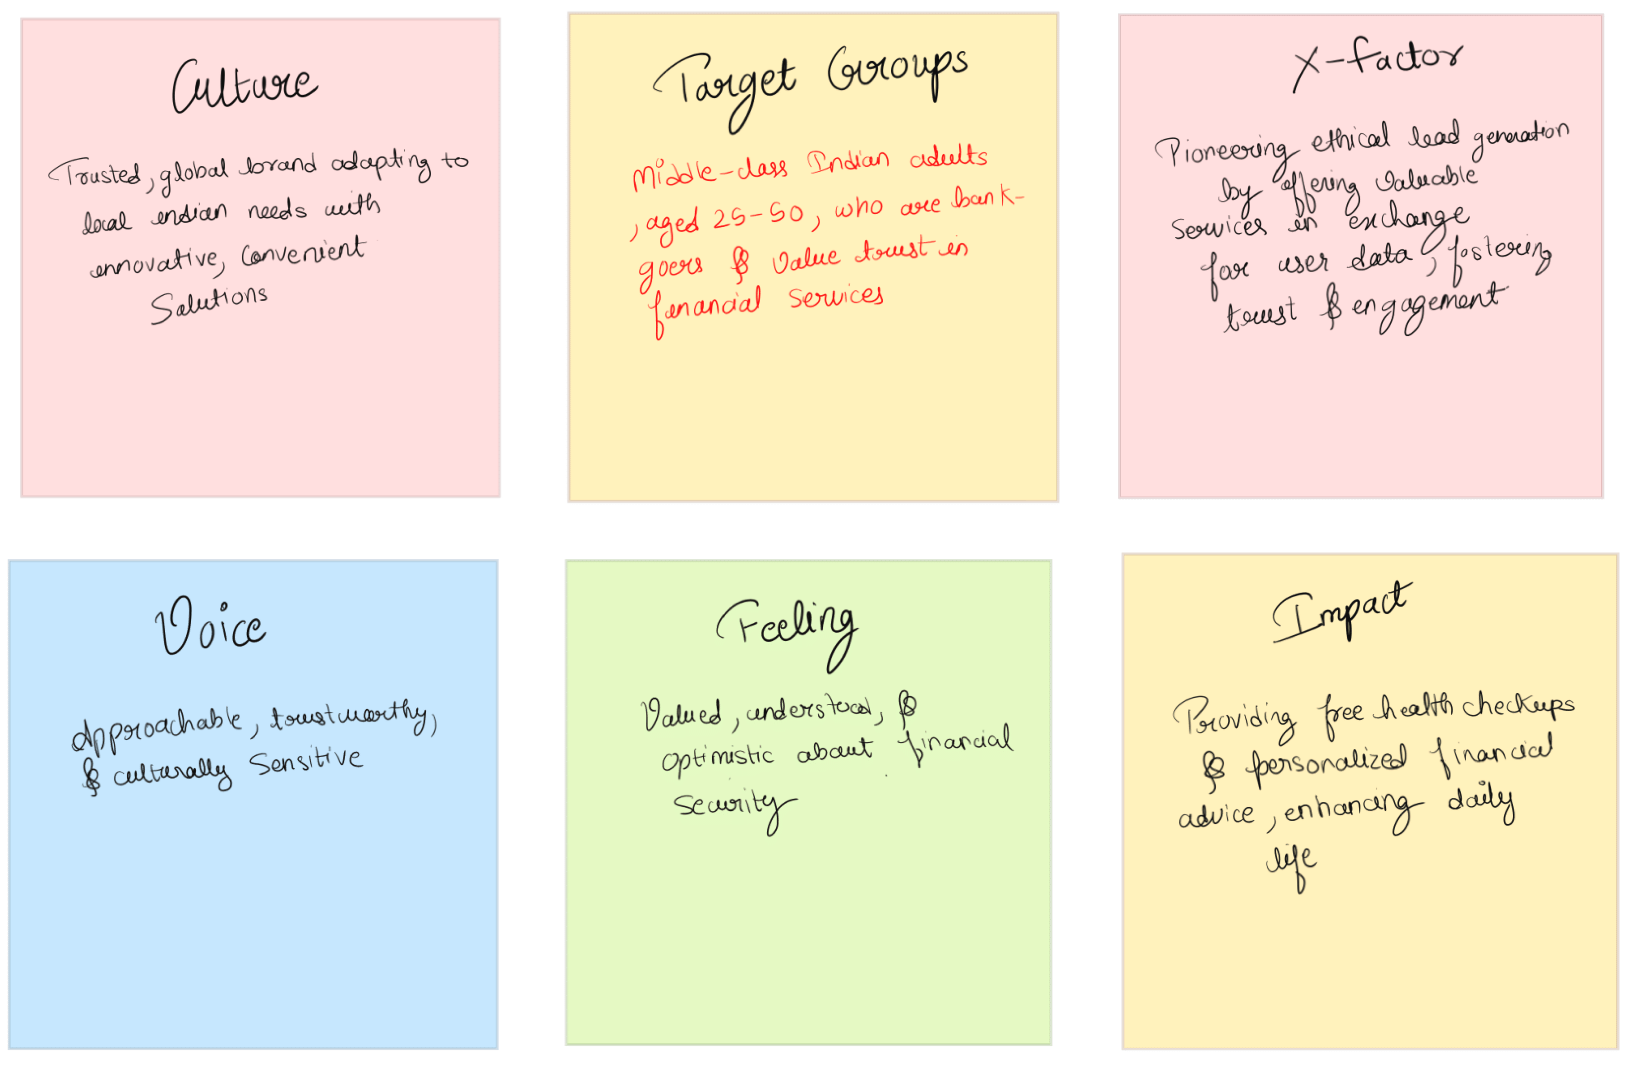 Culture
Trusted, global brand adapting to
local indian needs with
innovative, Convenient
Solutions
Target Groups
Middle-class Indian adults
, aged 25-50, who are bank-
goers & Value trust in
financial Services
X-factor
Pioneering ethical lead generation
by offering Valuable
Services in exchange
for user data, fostering
trust & engagement
Voice
Approachable, trustworthy,
& culturally Sensitive
Feeling
Valued, understood, &
optimistic about financial
security
Impact
Providing free health checkups
& personalized financial
advice, enhancing daily
life